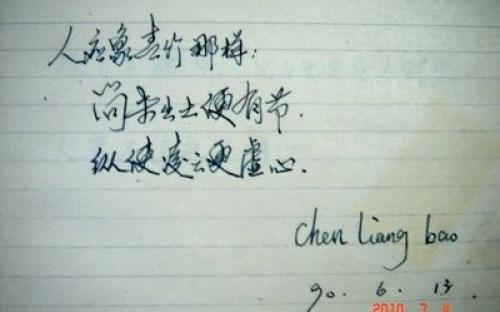 人应象青竹那样:
尚未出土便有节.
纵使凌云更虚心.
chen liang bao
90. 6. 13.
2010 7 4